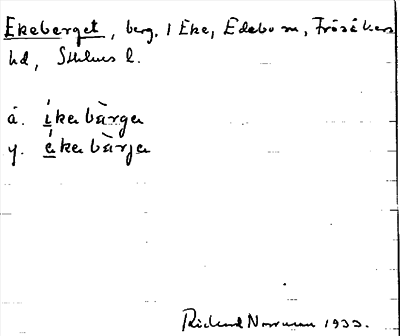 Ekeberget, berg, i Eke, Edebo sn, Frösåkers
hd, Sthlms l.
ä. ìkebàrga
y. èkebàrja
Rickard Norrman 1933.